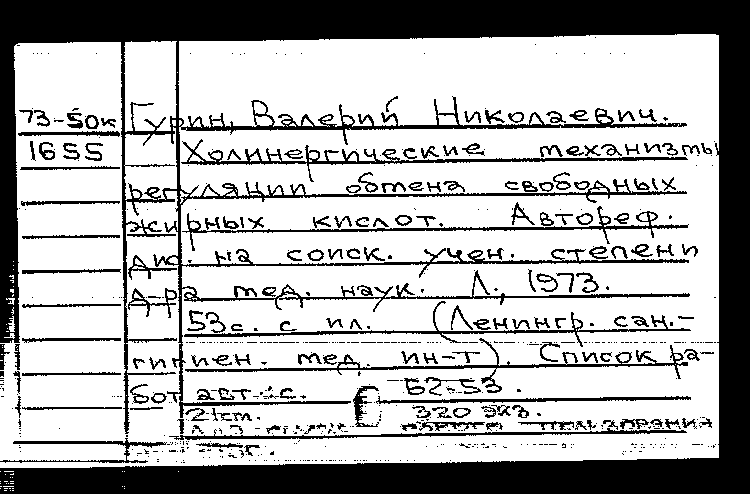 73-50к Гурин, Валерий Николаевич.
1655 Холинергические механизмы
регуляции обмена свободных
жирных кислот. Автореф.
дис. на соиск. учен. степени
д-ра мед. наук. Л., 1973.
53с. с ил. (Ленингр. сан.-
гигиен. мед. ин-т). Список ра-
бот авт. с. 52-53.
21см. 320 экз.
пользования